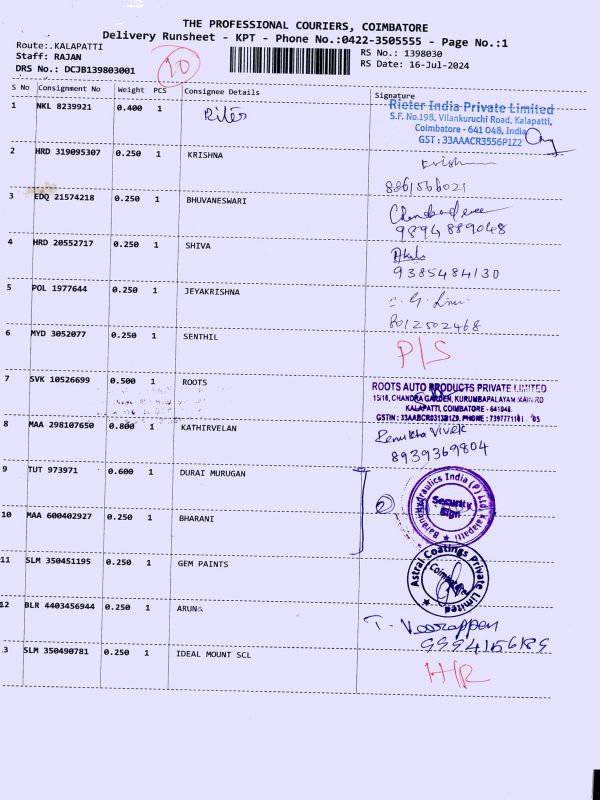 THE PROFESSIONAL COURIERS, COIMBATORE
Delivery Runsheet - KPT - Phone No.:0422-3505555 - Page No.:1
Route:.KALAPATTI
Staff: RAJAN
DRS No.: DCJB139803001
10
RS No.: 1398030
RS Date: 16-Jul-2024
S No Consignment No Weight PCS Consignee Details Signature
1 NKL 8239921 0.400 1 Riter
Rieter India Private Limited
S.F. No.198, Vilankuruchi Road, Kalapatti,
Coimbatore - 641 048, India
GST : 33AAACR3556P1Z2
2 HRD 319095307 0.250 1 KRISHNA
Krishna
8861566021
3 EDQ 21574218 0.250 1 BHUVANESWARI
9894889048
4 HRD 20552717 0.250 1 SHIVA
9385484130
5 POL 1977644 0.250 1 JEYAKRISHNA
8012502468
6 MYD 3052077 0.250 1 SENTHIL
P/S
7 SVK 10526699 0.500 1 ROOTS
ROOTS AUTO PRODUCTS PRIVATE LIMITED
15/16, CHANDRA GARDEN, KURUMBAPALAYAM MAIN RD
KALAPATTI, COIMBATORE - 641048.
8 MAA 298107650 0.800 1 KATHIRVELAN
Renukha Vivek
8939369804
9 TUT 973971 0.600 1 DURAI MURUGAN
Hydraulics India (P) Ltd Kalapatti
Security Sign
10 MAA 600402927 0.250 1 BHARANI
11 SLM 350451195 0.250 1 GEM PAINTS
Astral Coatings Private Limited
Coimbatore
12 BLR 4403456944 0.250 1 ARUNG
T. Veerappan
9994156189
3 SLM 350490781 0.250 1 IDEAL MOUNT SCL
HR